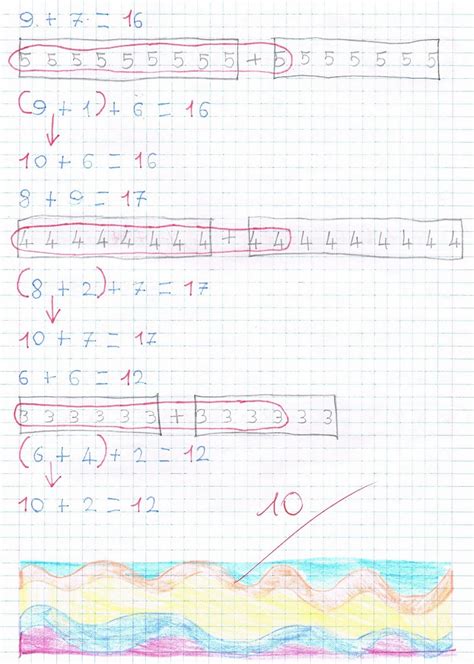 9 + 7 = 16
5 5 5 5 5 5 5 5 5 + 5 5 5 5 5 5 5
(9 + 1) + 6 = 16
10 + 6 = 16
8 + 9 = 17
4 4 4 4 4 4 4 4 + 4 4 4 4 4 4 4 4 4
(8 + 2) + 7 = 17
10 + 7 = 17
6 + 6 = 12
3 3 3 3 3 3 + 3 3 3 3 3 3
(6 + 4) + 2 = 12
10 + 2 = 12
10